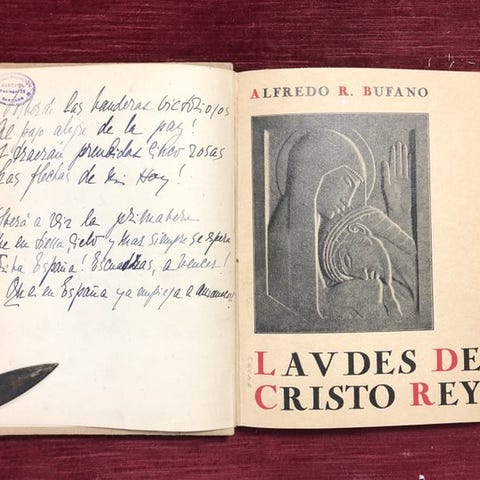 las banderas victoriosas
al paso alegre de la paz!
traeran prendidas cinco rosas
las flechas de mi Haz!
la primavera
en tierra cielo y mar siempre se espera
España! Escuadras, a vencer!
Que en España ya empieza a amanecer!
ALFREDO R. BUFANO
LAVDES DE
CRISTO REY